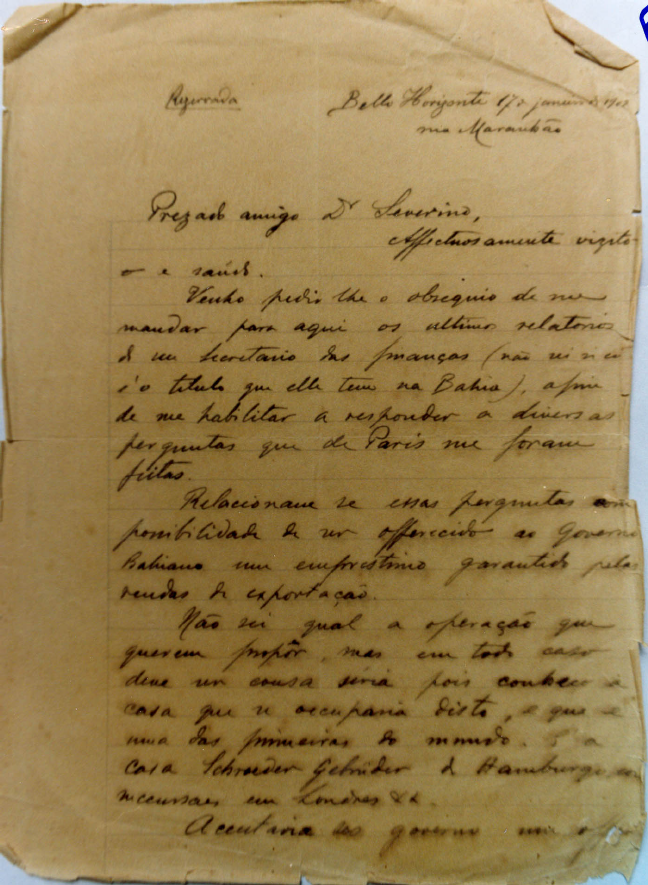 Reservada
Bello Horizonte 17 de janeiro de
rua Maranhão
Prezado amigo Dr Severino,
Affectuosamente vizito-
o e saúdo.
Venho pedir lhe o obsequio de me
mandar para aqui os ultimos relatorios
do seu Secretario das finanças (não sei si
é o titulo que elle tem na Bahia), afim
de me habilitar a responder a diversas
perguntas que de Paris me foram
feitas.
Relacionam se essas perguntas com
possibilidade de ser offerecido ao Governo
Bahiano um emprestimo garantido pelas
rendas de exportação.
Não sei qual a operação que
querem propôr, mas em todo caso
deve ser cousa séria pois conheço a
casa que se occuparia disto, e que é
uma das primeiras do mundo. É a
casa Schroeder Gebrüder de Hamburgo com
succursaes em Londres &a.
Acceitaria seo governo um